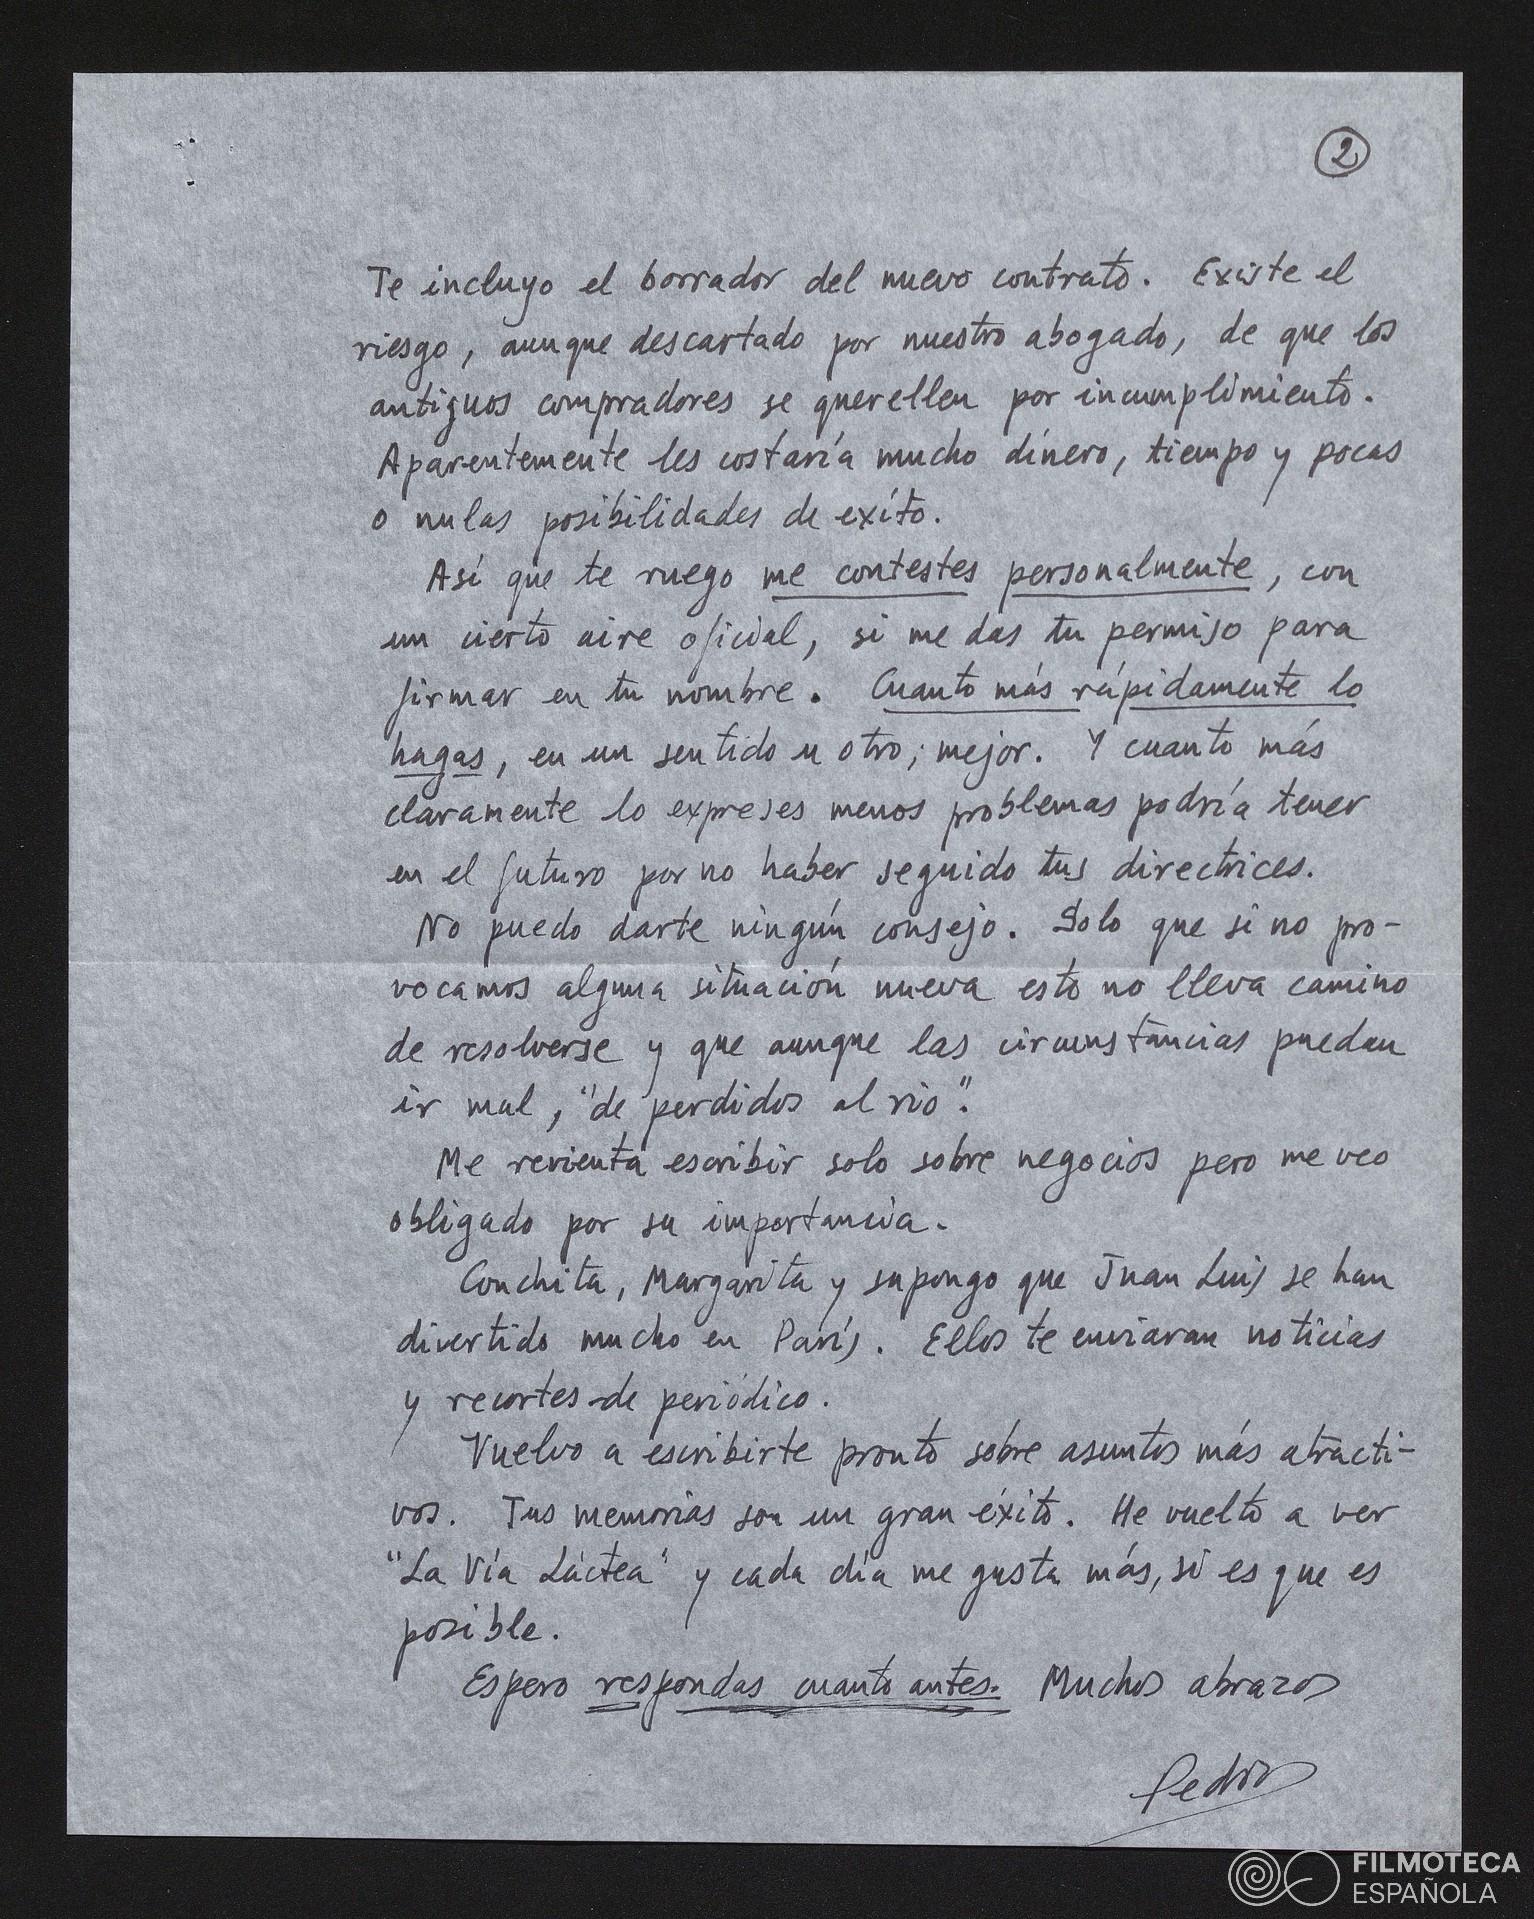 2
Te incluyo el borrador del nuevo contrato. Existe el
riesgo, aunque descartado por nuestro abogado, de que los
antiguos compradores se querellen por incumplimiento.
Aparentemente les costaría mucho dinero, tiempo y pocas
o nulas posibilidades de exíto.
Así que te ruego me contestes personalmente, con
un cierto aire oficial, si me das tu permiso para
firmar en tu nombre. Cuanto más rápidamente lo
hagas, en un sentido u otro; mejor. Y cuanto más
claramente lo expreses menos problemas podría tener
en el futuro por no haber seguido tus directrices.
No puedo darte ningún consejo. Solo que si no pro-
vocamos alguna situación nueva esto no lleva camino
de resolverse y que aunque las circunstancias puedan
ir mal, "de perdidos al rio".
Me revienta escribir solo sobre negocios pero me veo
obligado por su importancia.
Conchita, Margarita y supongo que Juan Luis se han
divertido mucho en París. Ellos te enviaran noticias
y recortes de periódico.
Vuelvo a escribirte pronto sobre asuntos más atracti-
vos. Tus memorias son un gran éxito. He vuelto a ver
"La Vía Láctea" y cada día me gusta más, si es que es
posible.
Espero respondas cuanto antes. Muchos abrazos
Pedro
FILMOTECA
ESPAÑOLA